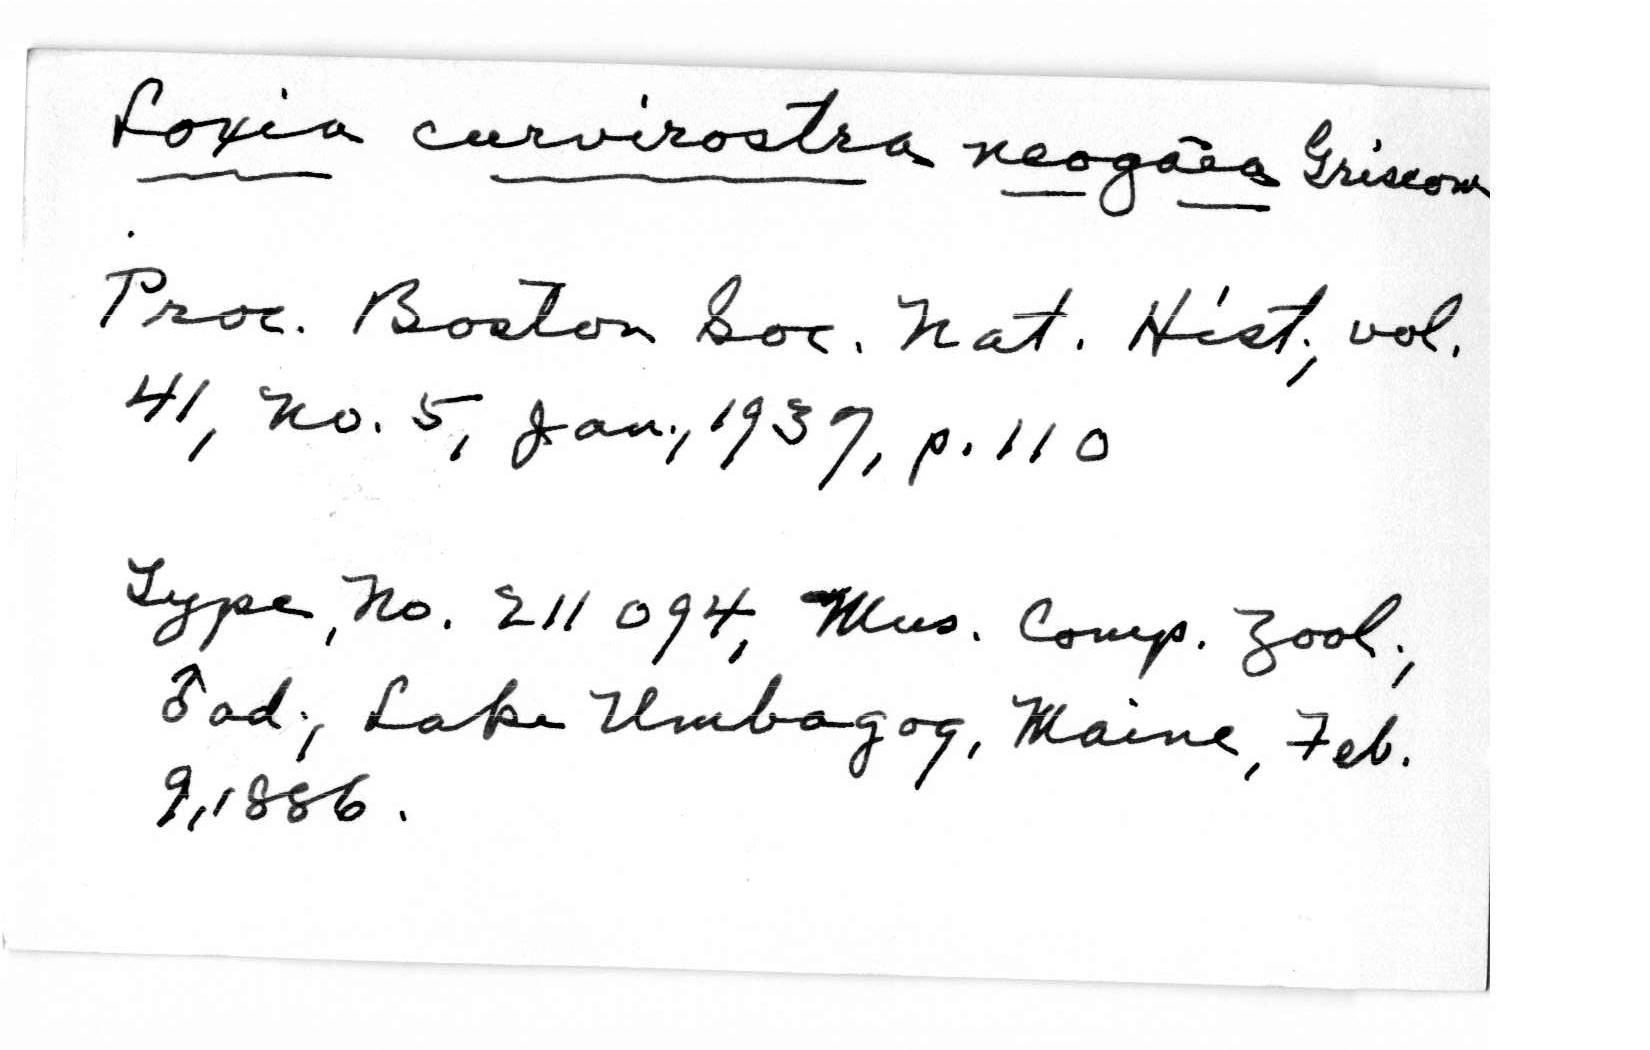 Loxia curvirostra neogaea Griscom
Proc. Boston Soc. Nat. Hist., vol.
41, No. 5, Jan., 1937, p. 110
Type, No. 211094, Mus. Comp. Zool.,
♂ ad., Lake Umbagog, Maine, Feb.
9, 1886.